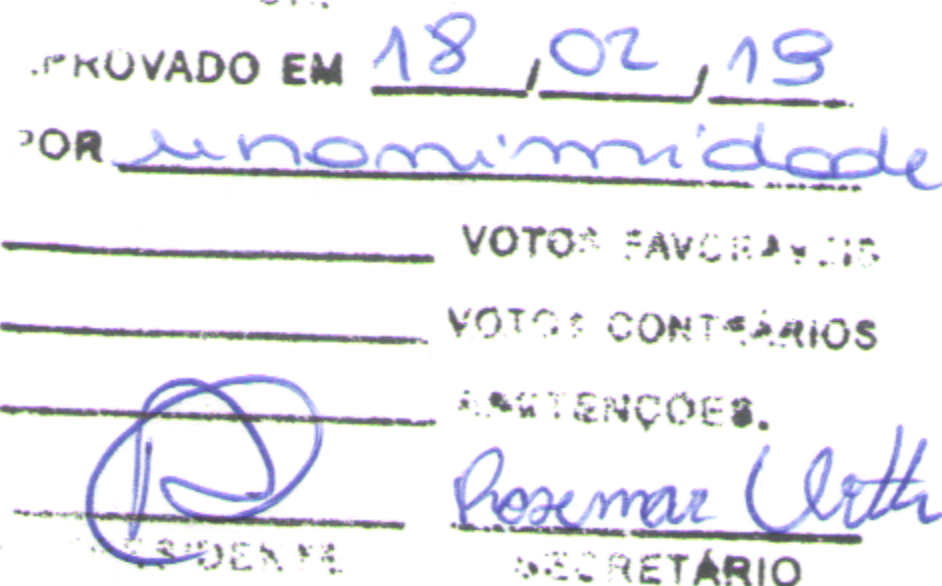 PROVADO EM 18/02/19
POR unanimidade
VOTOS FAVORAVEIS
VOTOS CONTRÁRIOS
ABSTENÇÕES.
Rosemar
PRESIDENTE SECRETÁRIO